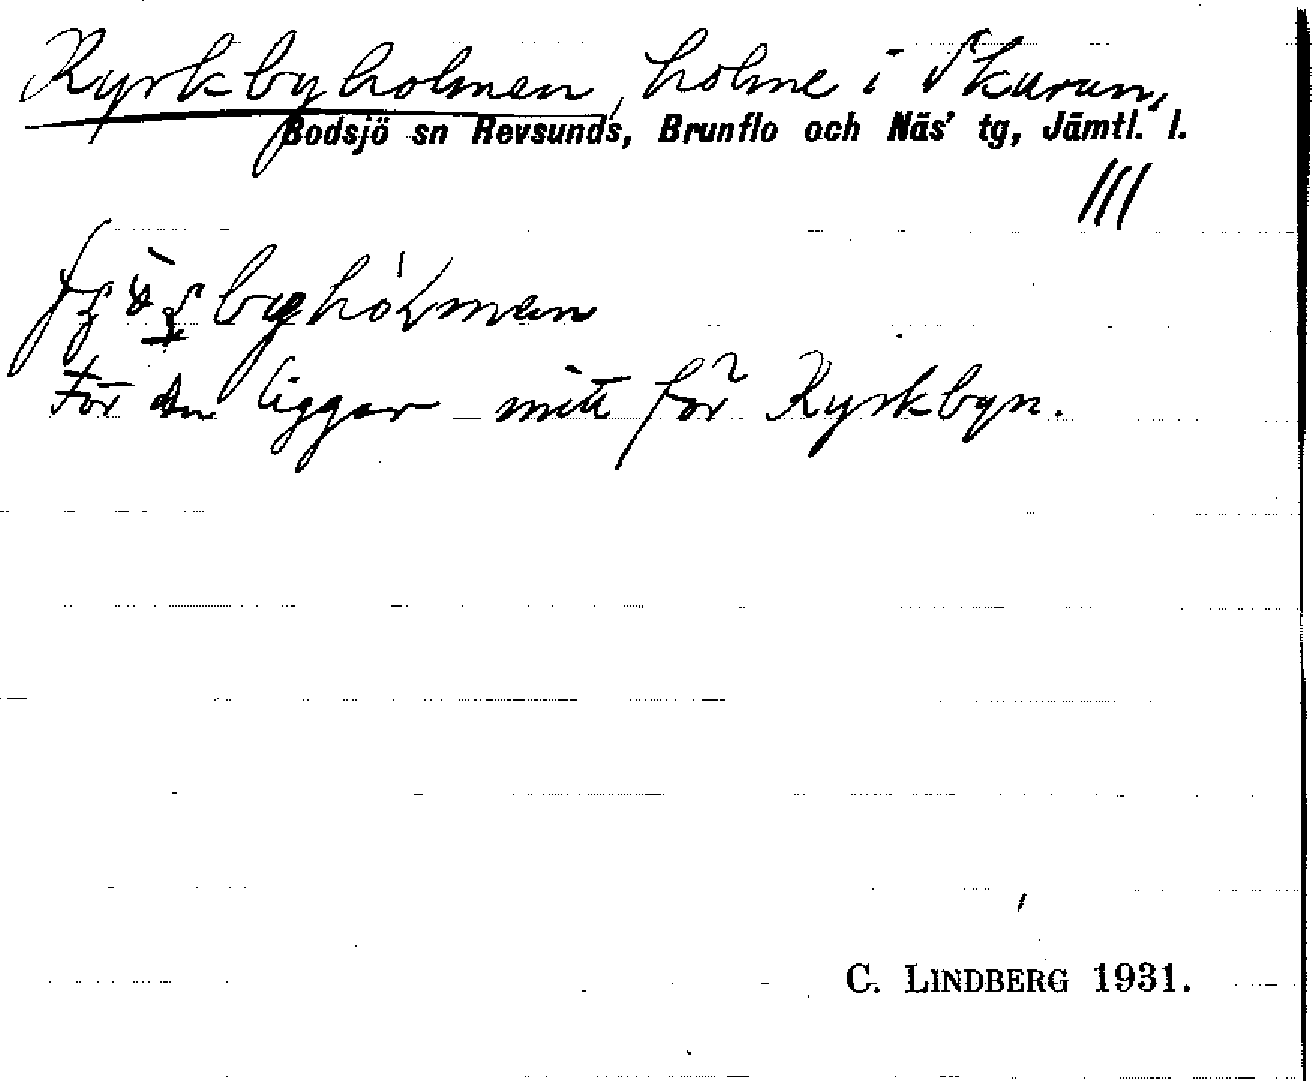 Kyrkbyholmen, holme i Skurun,
Bodsjö sn Revsunds, Brunflo och Näs' tg, Jämtl. l.
III
För den ligger mitt för Kyrkbyn.
C. LINDBERG 1931.